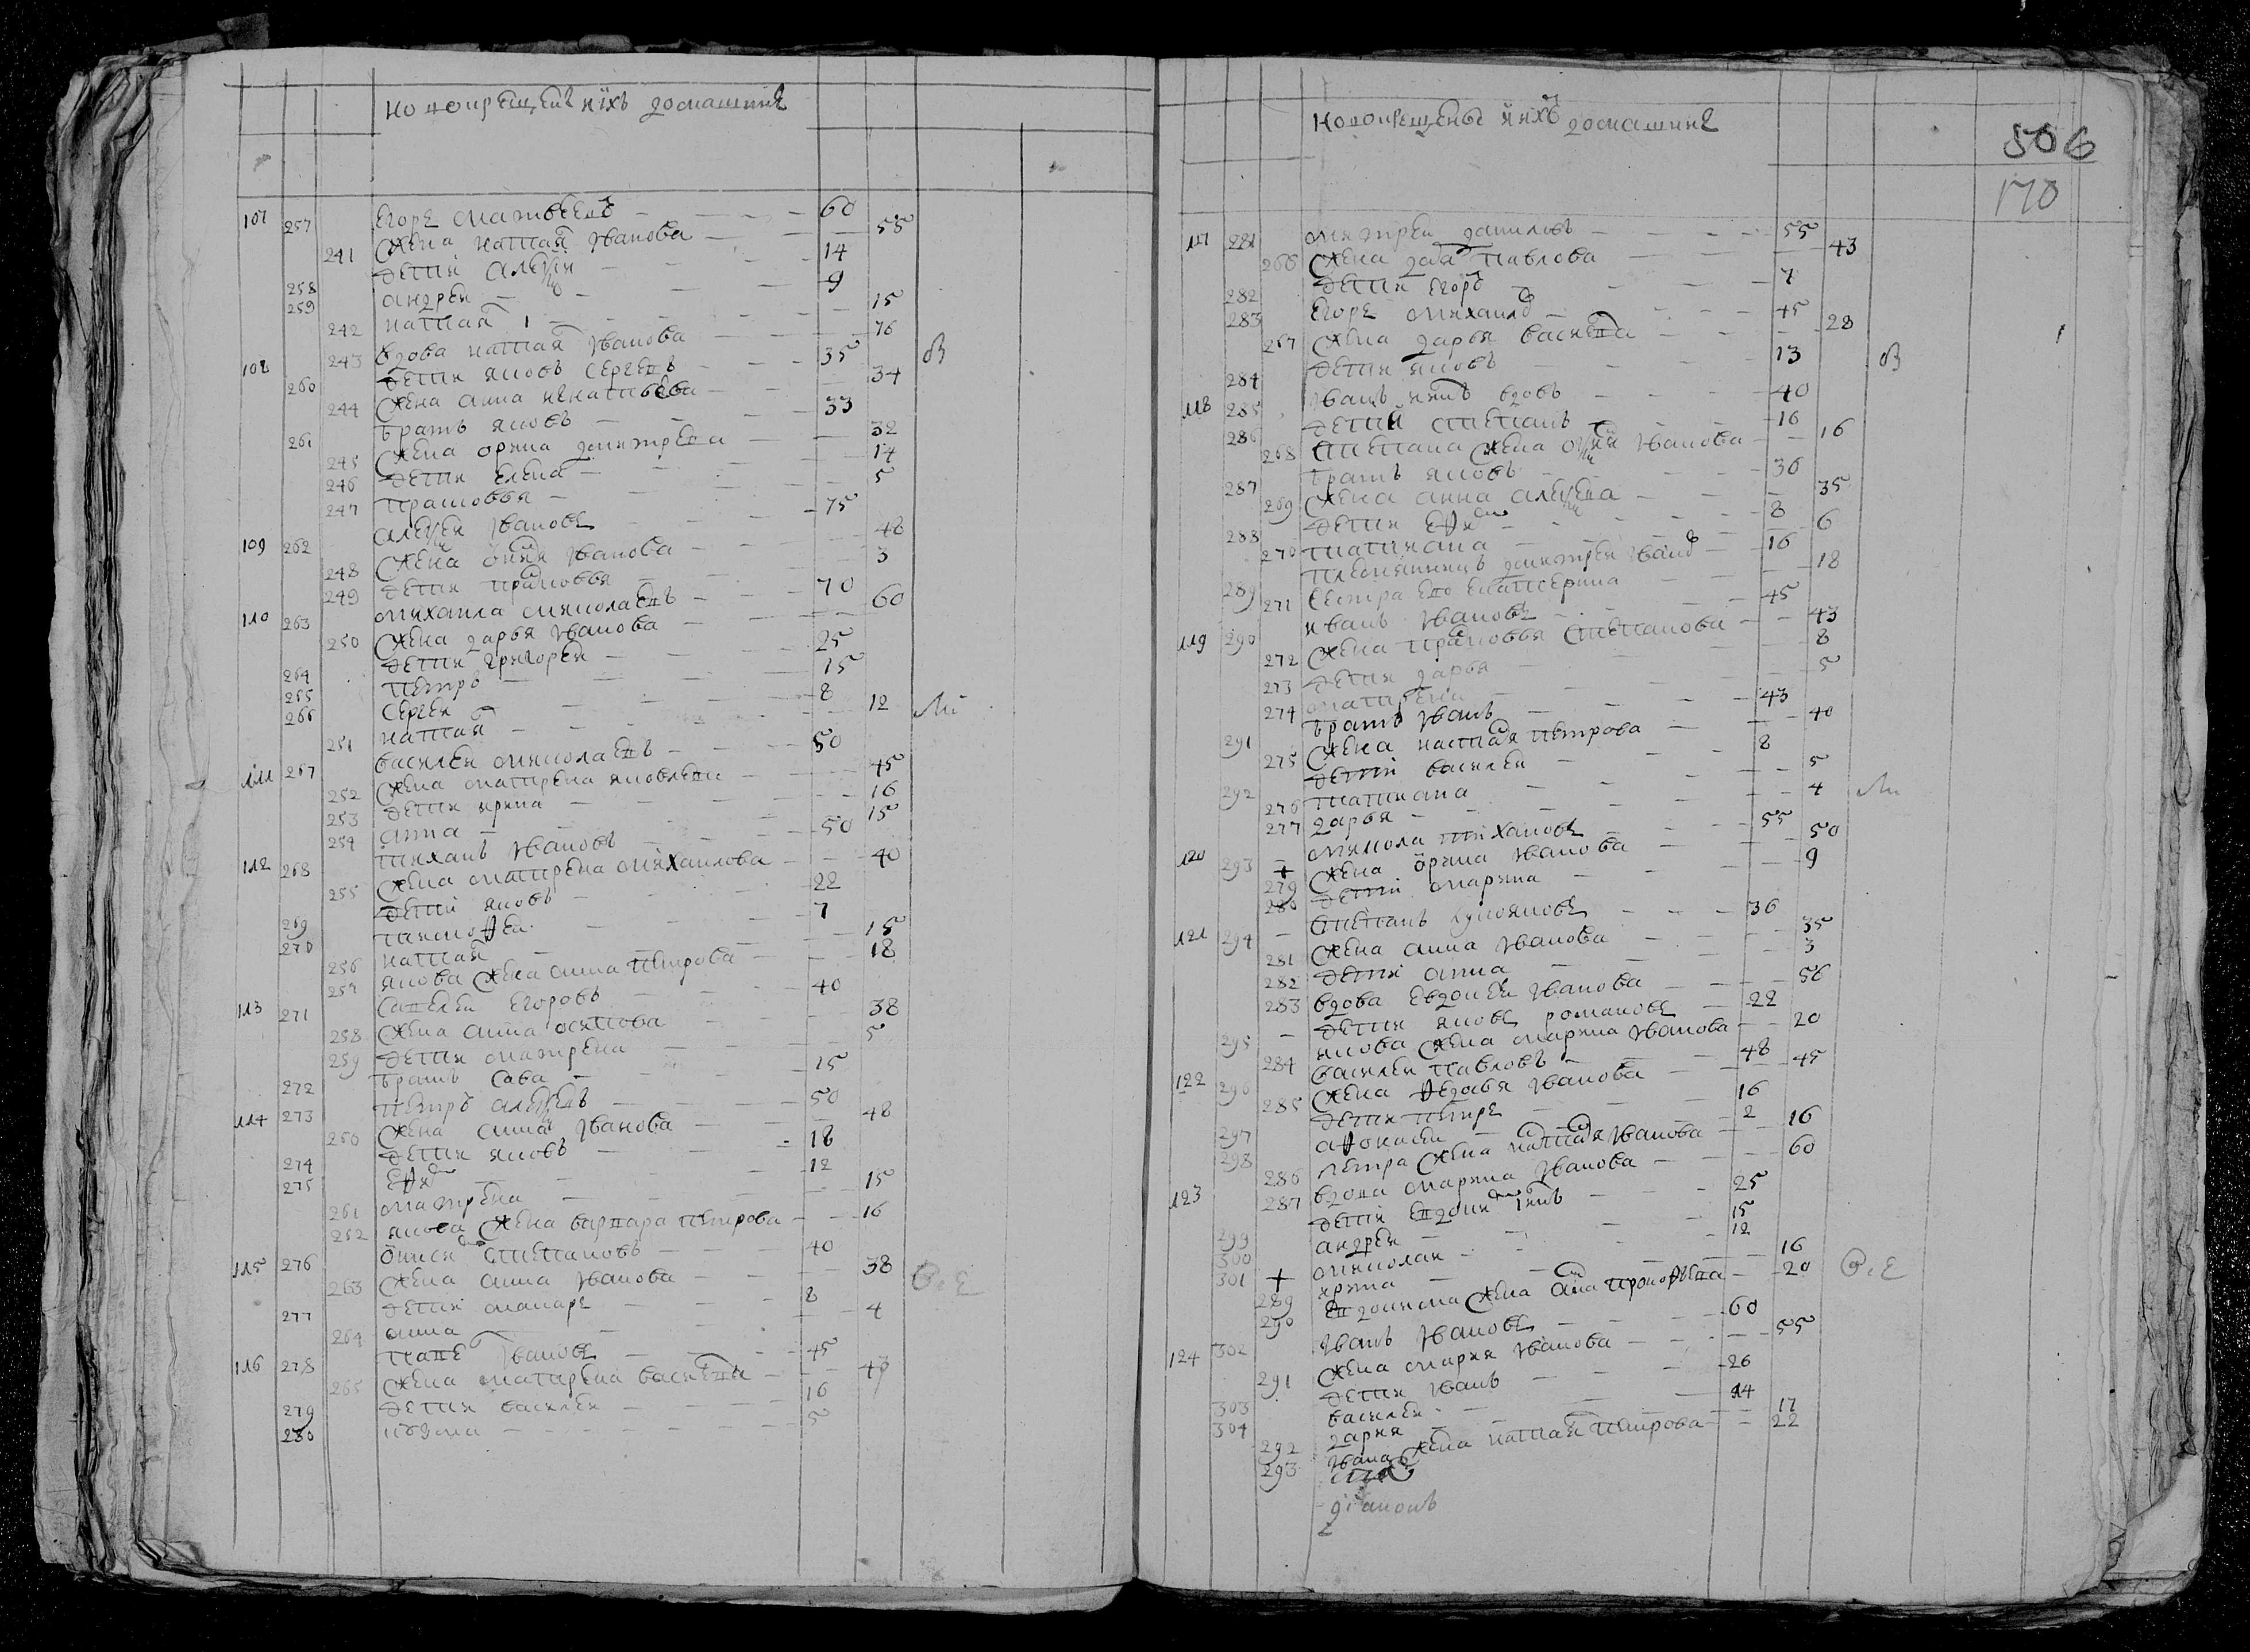 новокрещены и ихъ домашние
107 257 Егоръ Матвеевъ 60
241 Жена Настасья Иванова 55
258 дети Алексей 14
259 андрей 9
242 настасья 15
243 вдова настасья Иванова 76
108 260 дети яковъ Сергеевъ 35
244 Жена анна 34
261 братъ яковъ 33
245 Жена орина дмитрева 32
246 дети елена 14
247 прасковья 5
109 262 алексей Ивановъ 75
248 Жена Иванова 48
249 дети прасковья 3
110 263 михаила миколаевъ 70
250 Жена дарья Иванова 60
264 дети григорей 25
265 петръ 15
266 Сергей 8
251 настасья 12
111 267 василей миколаевъ 50
252 Жена матрена яковлева 45
253 дети ирина 16
254 анна 15
112 268 тиханъ Ивановъ 50
255 Жена матрена михаилова 40
269 дети яковъ 22
270 тимофей 7
256 настасья 15
257 якова Жена анна петрова 18
113 271 Савелей Егоровъ 40
258 Жена анна осипова 38
259 дети матрена 5
272 братъ Сава 15
114 273 петръ алексеевъ 50
260 Жена анна Иванова 48
274 дети яковъ 18
275 12
261 матрена 15
262 якова Жена варвара петрова 16
115 276 Степановъ 40
263 Жена анна Иванова 38
277 дети макаръ 8
264 анна 4
116 278 Ивановъ 45
265 Жена матрена васильева 43
279 дети василей 16
280 кузма 5
новокрещены и ихъ домашние
506
170
117 281 митрей даниловъ 55
266 Жена дарья павлова 43
282 дети Егоръ 7
283 Егоръ михаиловъ 45
267 Жена дарья васильева 28
284 дети яковъ 13
118 285 Иванъ вдовъ 40
286 дети степанъ 16
268 степана Жена Иванова 16
287 братъ яковъ 36
269 Жена анна алексеева 35
288 дети 8
270 татиана 6
289 племянникъ дмитрей Ивановъ 16
271 Сестра ево екатерина 18
119 290 иванъ Ивановъ 45
272 Жена прасковья степанова 43
273 дети дарья 8
274 матрена 5
291 братъ Иванъ 43
275 Жена настасья петрова 40
292 дети василей 8
276 татиана 5
277 дарья 4
120 293 микола тихановъ 55
279 Жена орина Иванова 50
280 дети марина 9
121 294 Степанъ 36
281 Жена анна Иванова 35
282 дети анна 3
283 вдова евдокея Иванова 56
295 дети яковъ романовъ 22
284 якова Жена марина Иванова 20
122 296 василей павловъ 48
285 Жена федосья Иванова 45
297 дети петръ 16
298 афонасей 2
286 петра Жена настасья Иванова 16
123 287 вдова марина Иванова 60
299 дети 25
300 андрей 15
301 миколай 12
289 ирина 16
290 евдокима Жена 20
124 302 Иванъ Ивановъ 60
291 Жена мария Иванова 55
303 дети Иванъ 26
304 василей 14
292 дария 17
293 Ивана Жена настасья петрова 22